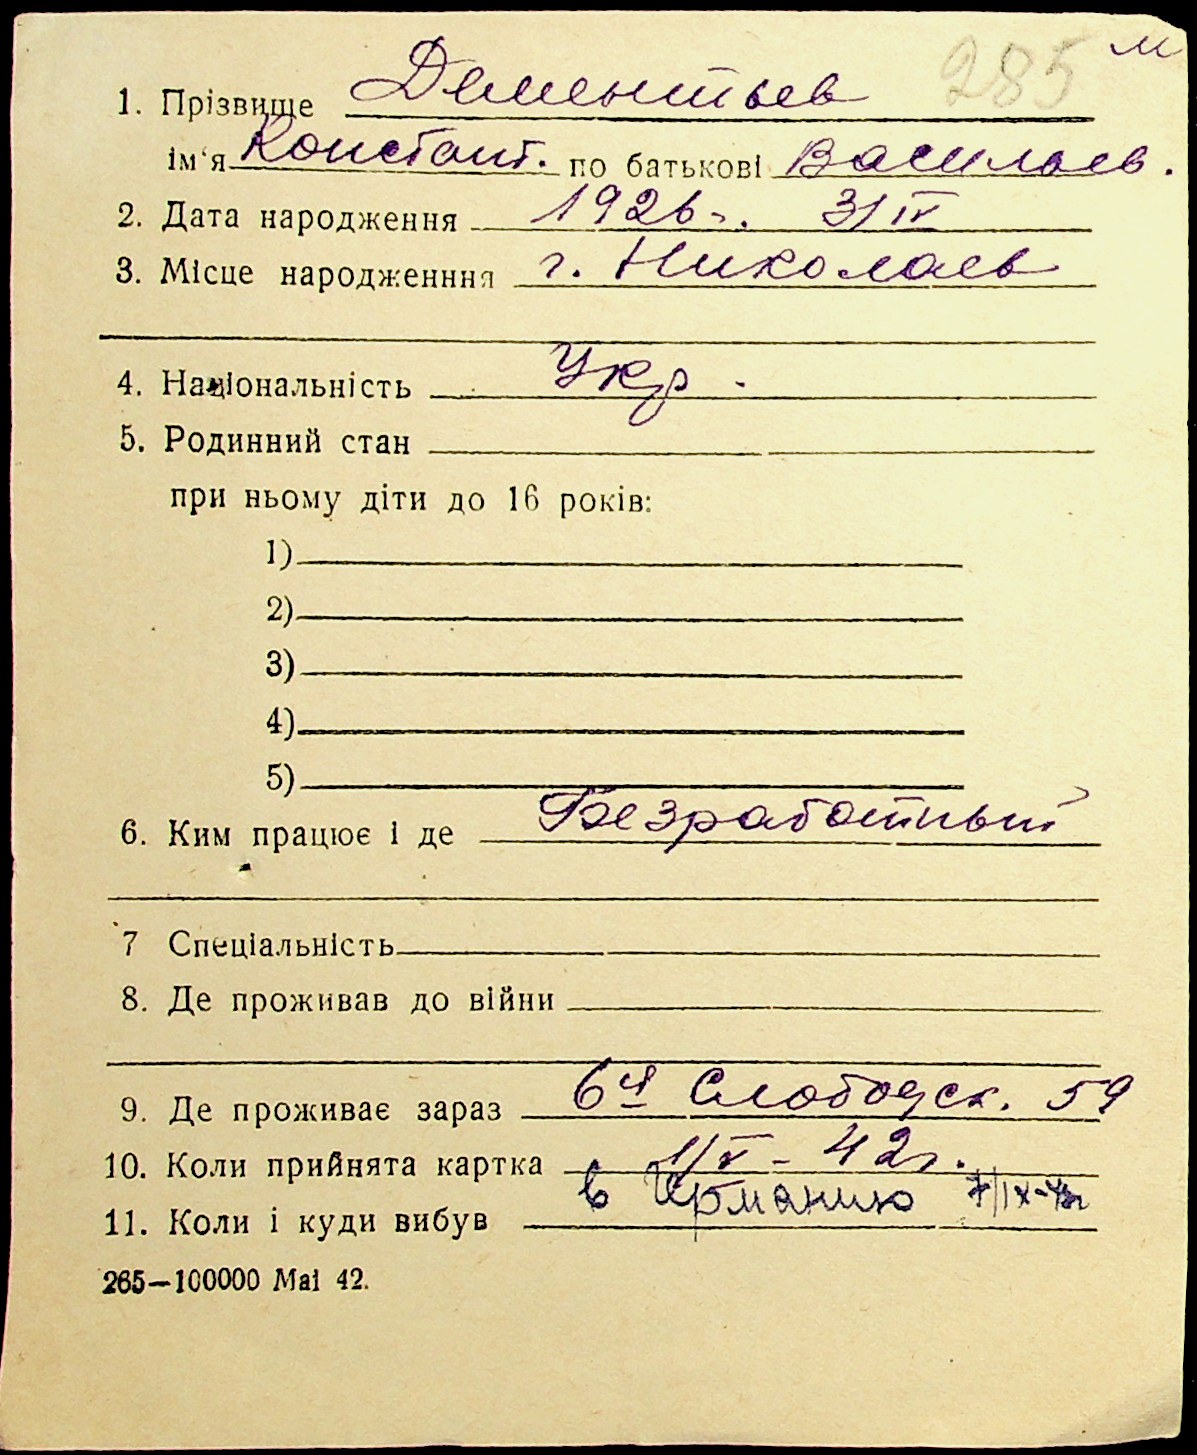 285 м
1. Прізвище Дементьев
ім'я Констант. по батькові Васильев.
2. Дата народження 1926 г. 3/IV
3. Місце народженння г. Николаев
4. Національність Укр.
5. Родинний стан
при ньому діти до 16 років:
1)
2)
3)
4)
5)
6. Ким працює і де Безработный
7 Спеціальність
8. Де проживав до війни
9. Де проживає зараз 6я Слободск. 59
10. Коли прийнята картка 1/V - 42 г.
11. Коли і куди вибув в Германию
265—100000 Маі 42.